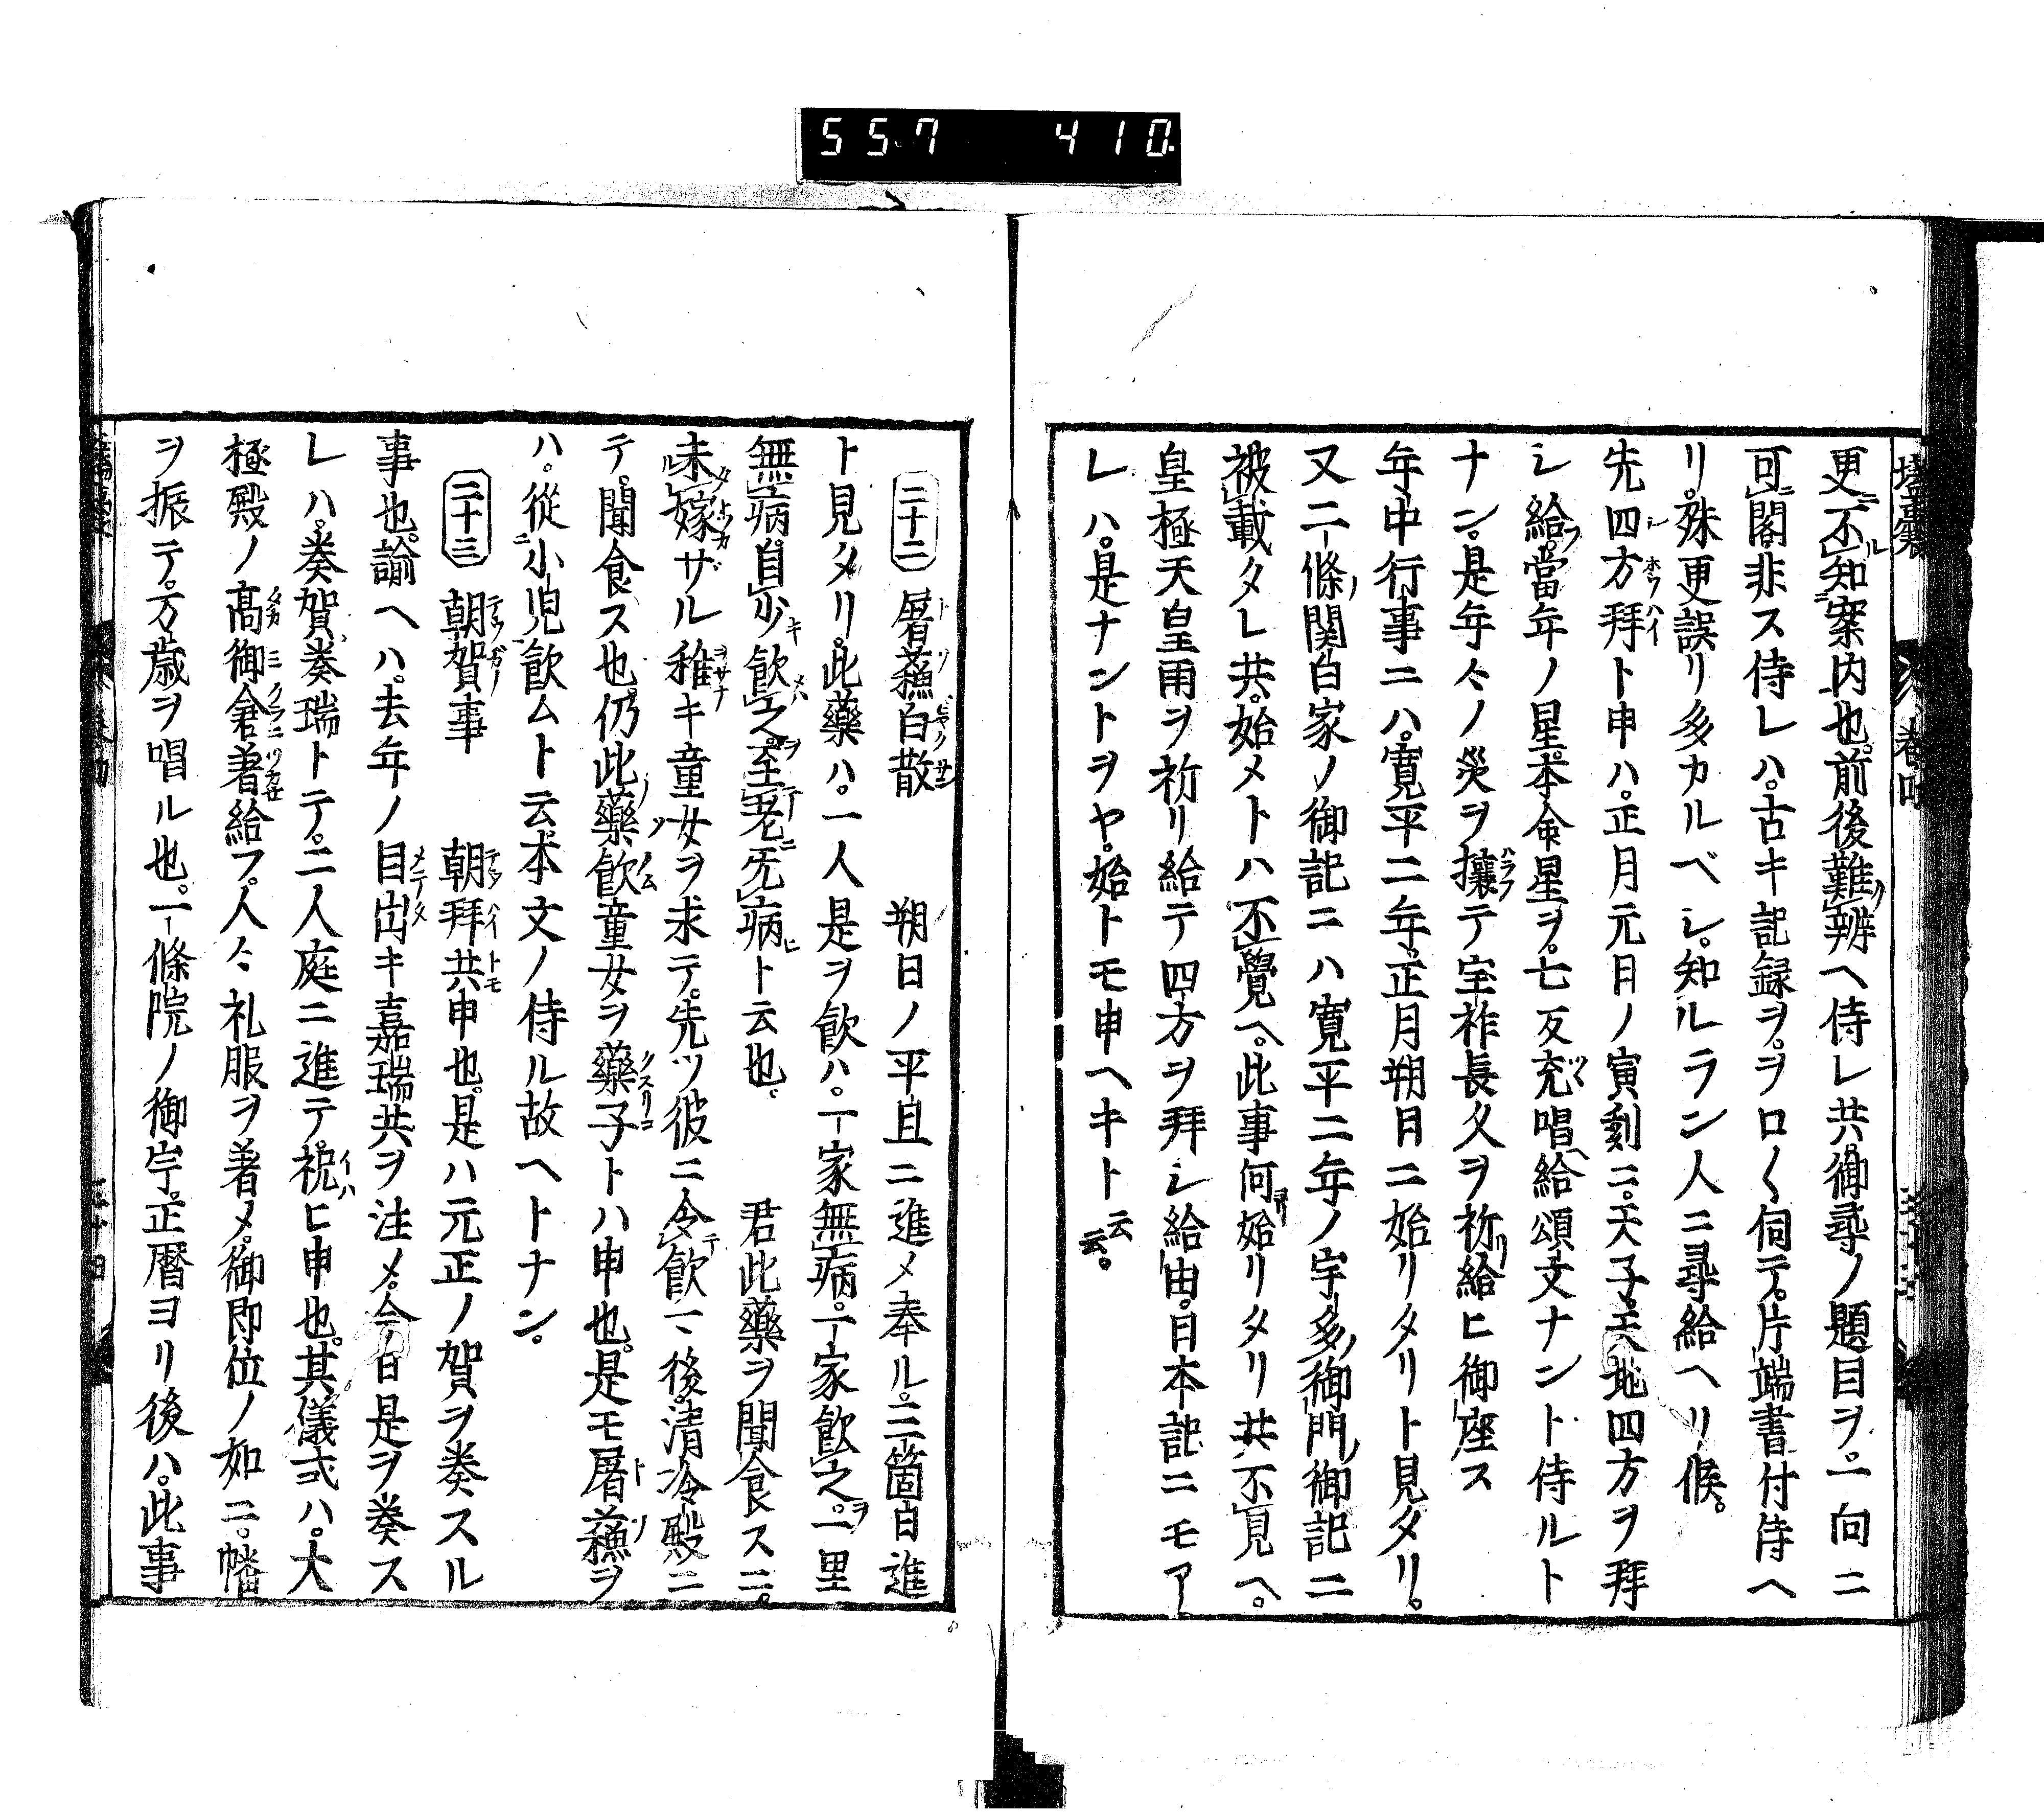 557 410
更ニ不知案内也。前後難辨ヘ侍レ共。御尋ノ題目ヲ。一向ニ
可閣非ス侍レハ。古キ記録ヲ。ヲロ〱伺テ。片端書付侍ヘ
リ。殊更誤リ多カルベシ。知ルラン人ニ尋給ヘリ候。
先四方拜ト申ハ。正月元日ノ寅刻ニ。天子。天地四方ヲ拜
シ給フ。當年ノ星。本命星ヲ。七反充唱ヘ給頌文ナント侍ルト
ナン。是年々ノ災ヲ攘テ宝祚長久ヲ祈給ヒ御座ス
年中行事ニハ。寛平二年。正月朔日ニ始リタリト見タリ。
又二條ノ関白家ノ御記ニハ寛平二年ノ宇多ノ御門ノ御記ニ
被載タレ共。始メトハ不覺ヘ。此事何ヨリ始リタリ共不見ヘ。
皇極天皇雨ヲ祈リ給テ四方ヲ拜シ給由。日本記ニモアー
レハ。是ナントヲヤ。始トモ申ヘキト云云。
二十二 屠蘓白散 朔日ノ平旦ニ進メ奉ル。三箇日進
ト見タリ。此藥ハ。一人是ヲ飲ハ。一家無病。一家飲之ヲ。一里
無病。自少キ飲之ヲ。至テ老ニ无病ト云也。 君此藥ヲ聞食スニ。
未嫁ザル稚キ童女ヲ求テ。先ツ彼ニ令飲テ後。清冷殿ニ
テ。聞食ス也。仍此ノ藥ノ飲童女ヲ藥子トハ申也。是モ屠蘓ヲ
ハ。從小児飲ムト云本文ノ侍ル故ヘトナン。
二十三 朝賀ノ事 朝拜共申也。是ハ元正ノ賀ヲ奏スル
事也。諭ヘハ。去年ノ目出キ嘉瑞共ヲ注メ。今ノ日是ヲ奏ス
レハ。奏賀。奏瑞トテ。二人庭ニ進テ。祝ヒ申也。其儀式ハ。大
極殿ノ髙御倉ニ着給フ。人々礼服ヲ著メ。御即位ノ如ニ。幡
ヲ振テ。万歳ヲ唱ル也。一條院ノ御宇。正暦ヨリ後ハ。此事